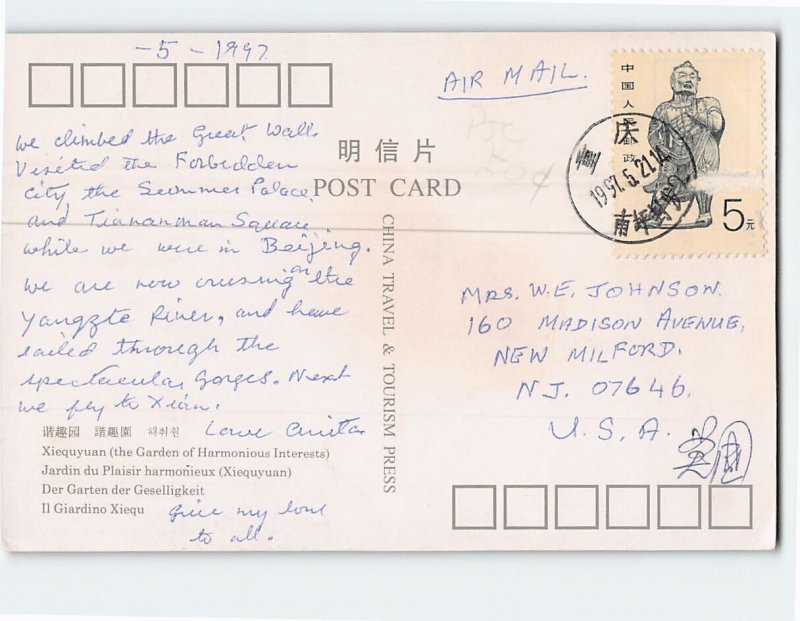 -5-1997
AIR MAIL.
we climbed the Great Wall.
Visited the Forbidden
City, the Summer Palace,
and Tiananman Square,
while we were in Beijing.
We are now cruising on the
Yangzte River, and have
sailed through the
spectacular gorges. Next
we fly to Xian.
Love Anita
谐趣园 諧趣園 해취원
Xiequyuan (the Garden of Harmonious Interests)
Jardin du Plaisir harmonieux (Xiequyuan)
Der Garten der Geselligkeit
Il Giardino Xiequ
give my love
to all.
明信片
POST CARD
CHINA TRAVEL & TOURISM PRESS
中国人民邮政
5元
重庆
1997.5.21.14
南坪
MRS. W.E. JOHNSON.
160 MADISON AVENUE,
NEW MILFORD.
NJ. 07646.
U.S.A.
美国